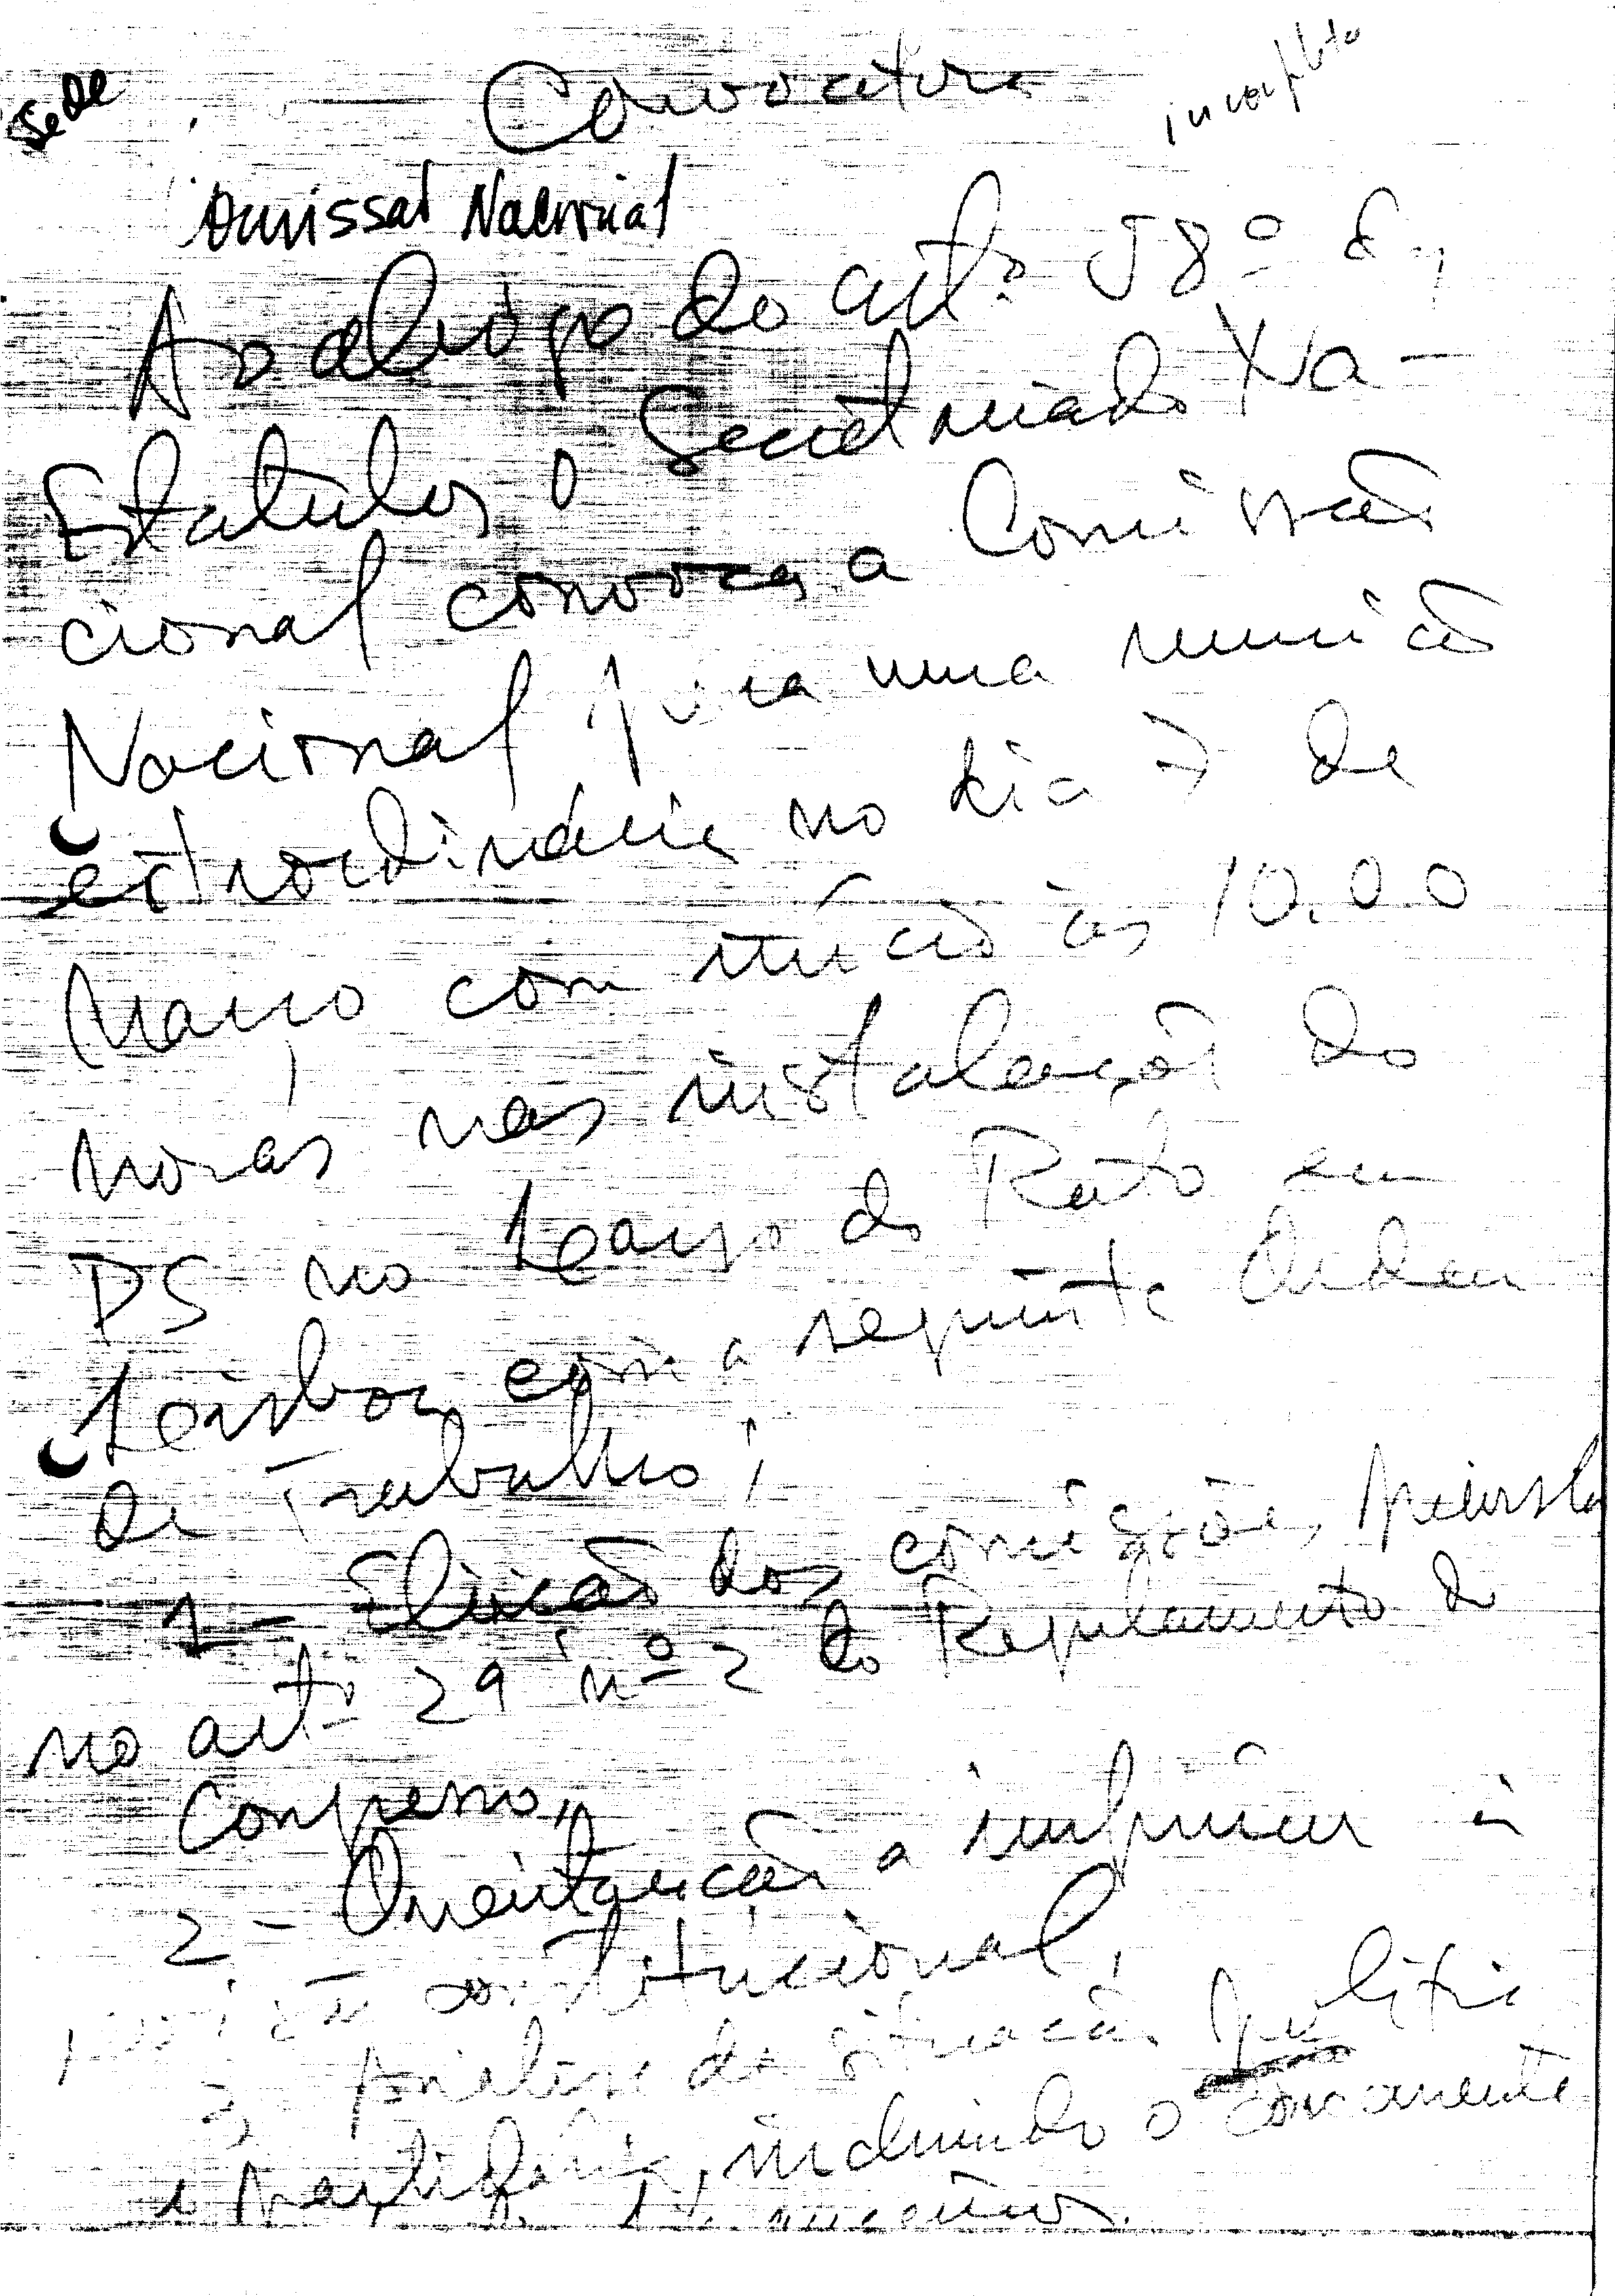 Sede
Convocatória
incompleto
Comissão Nacional
Ao abrigo do artº 58º dos
Estatutos o Secretariado Na-
cional convoca a Comissão
Nacional para uma reunião
extraordinária no dia 7 de
Março com início às 10.00
horas nas instalações do
PS no Largo do Rato em
Lisboa, com a seguinte Ordem
de Trabalho:
1 - Eleição das comissões prevista
no artº 29 nº 2 do Regulamento do
Congresso,
2 - Orientação a imprimir à
revisão constitucional,
3 - Análise da situação política
e partidária, incluindo o